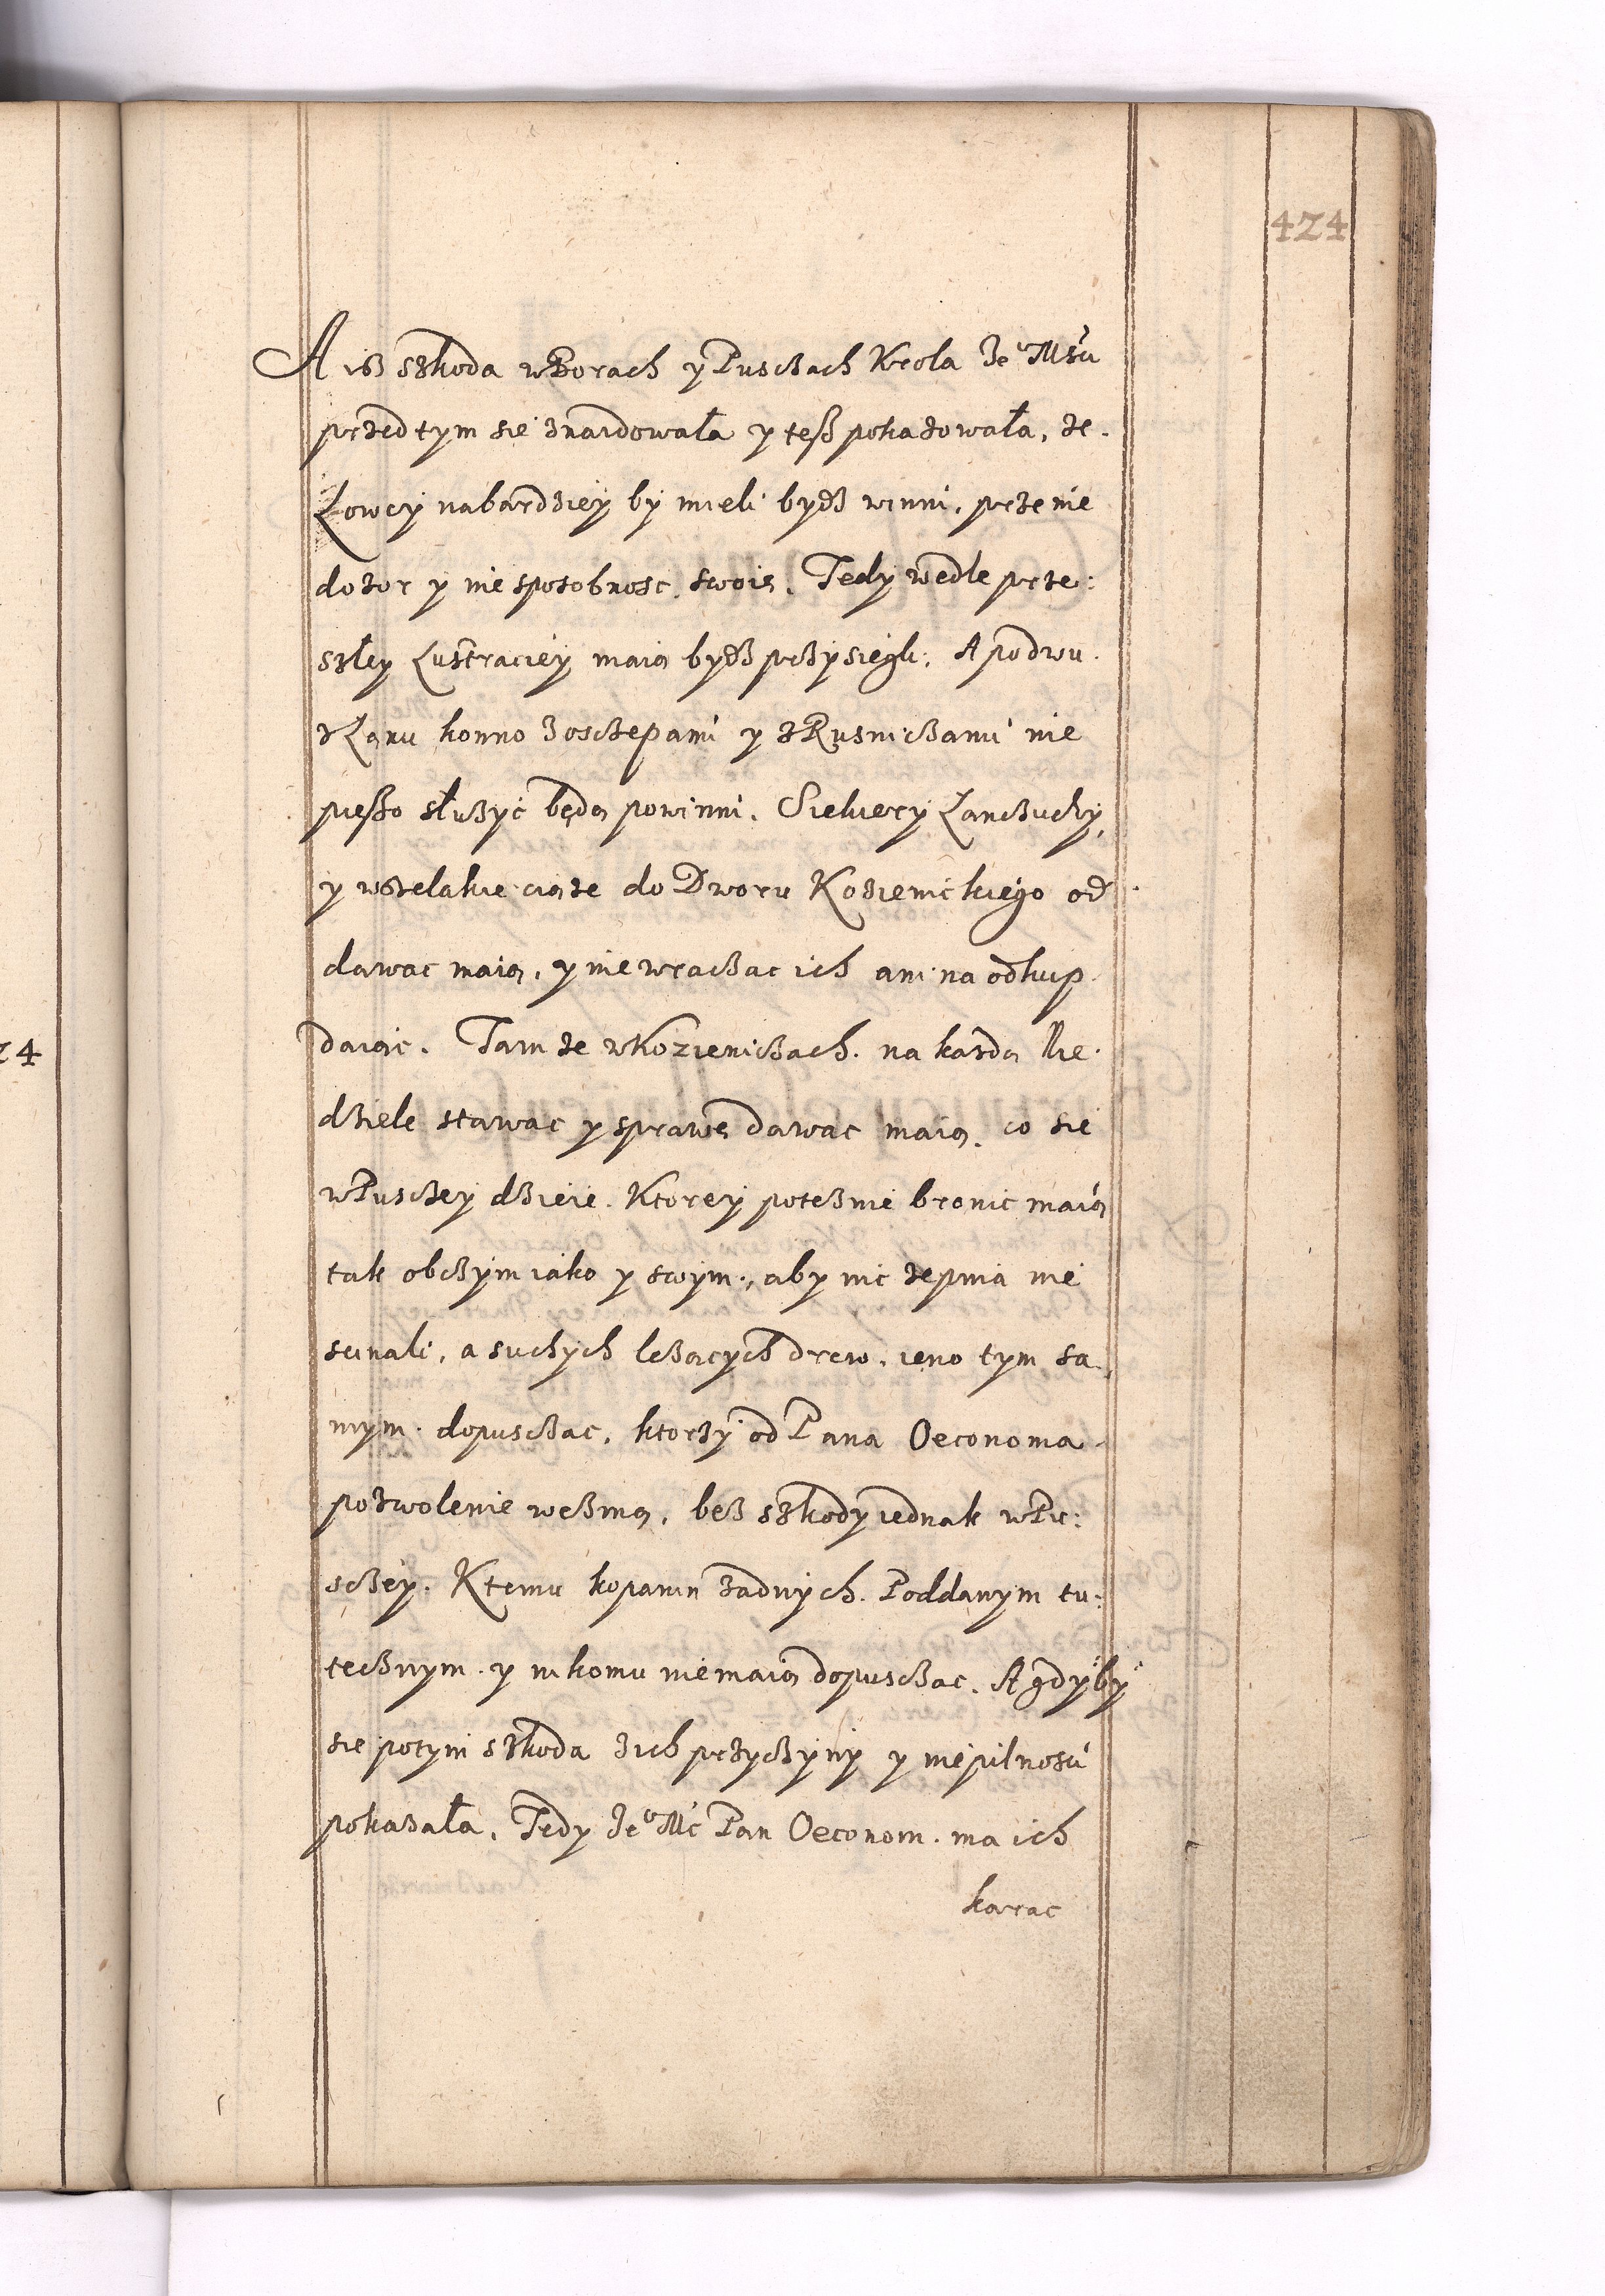 424
A isz szkoda w Borach y Pusczach Krola Je° Mści
przed tym sie znaidowała y tesz pokazowała, ze
Łowcy nabardziey by mieli bydz winni, prze nie
dozor y niesposobnosc swoię. Tedy wedle prze:
szłey Lustraciey maią bydz przysiegli. A po dwu
z Łanu konno z osczepami y z Rusniczami nie
pieszo słuzyć będą powinni. Siekiery Lanczuchy,
y wszelakie ciąze do Dworu Kozienickiego od
dawac maią, y nie wraczac ich ani na odkup
daiąc. Tamze w Kozienicach na kazdą Nie
dziele stawac y sprawę dawac maią, co sie
w Pusczey dzieie. Ktorey poteznie bronic maią
tak obczym iako y swym, aby nic ze pnia nie
scinali, a suchych lezących drew, ieno tym sa
mym dopusczac, ktorzy od Pana Oeconoma
pozwolenie wezmą, bez szkody iednak w Pu:
sczey. K temu kopanin zadnych Poddanym tu:
tecznym y nikomu nie maią dopusczac. A gdyby
sie potym szkoda z ich przyczyny y niepilnosci
pokazała, Tedy Je° Mć Pan Oeconom ma ich
karac